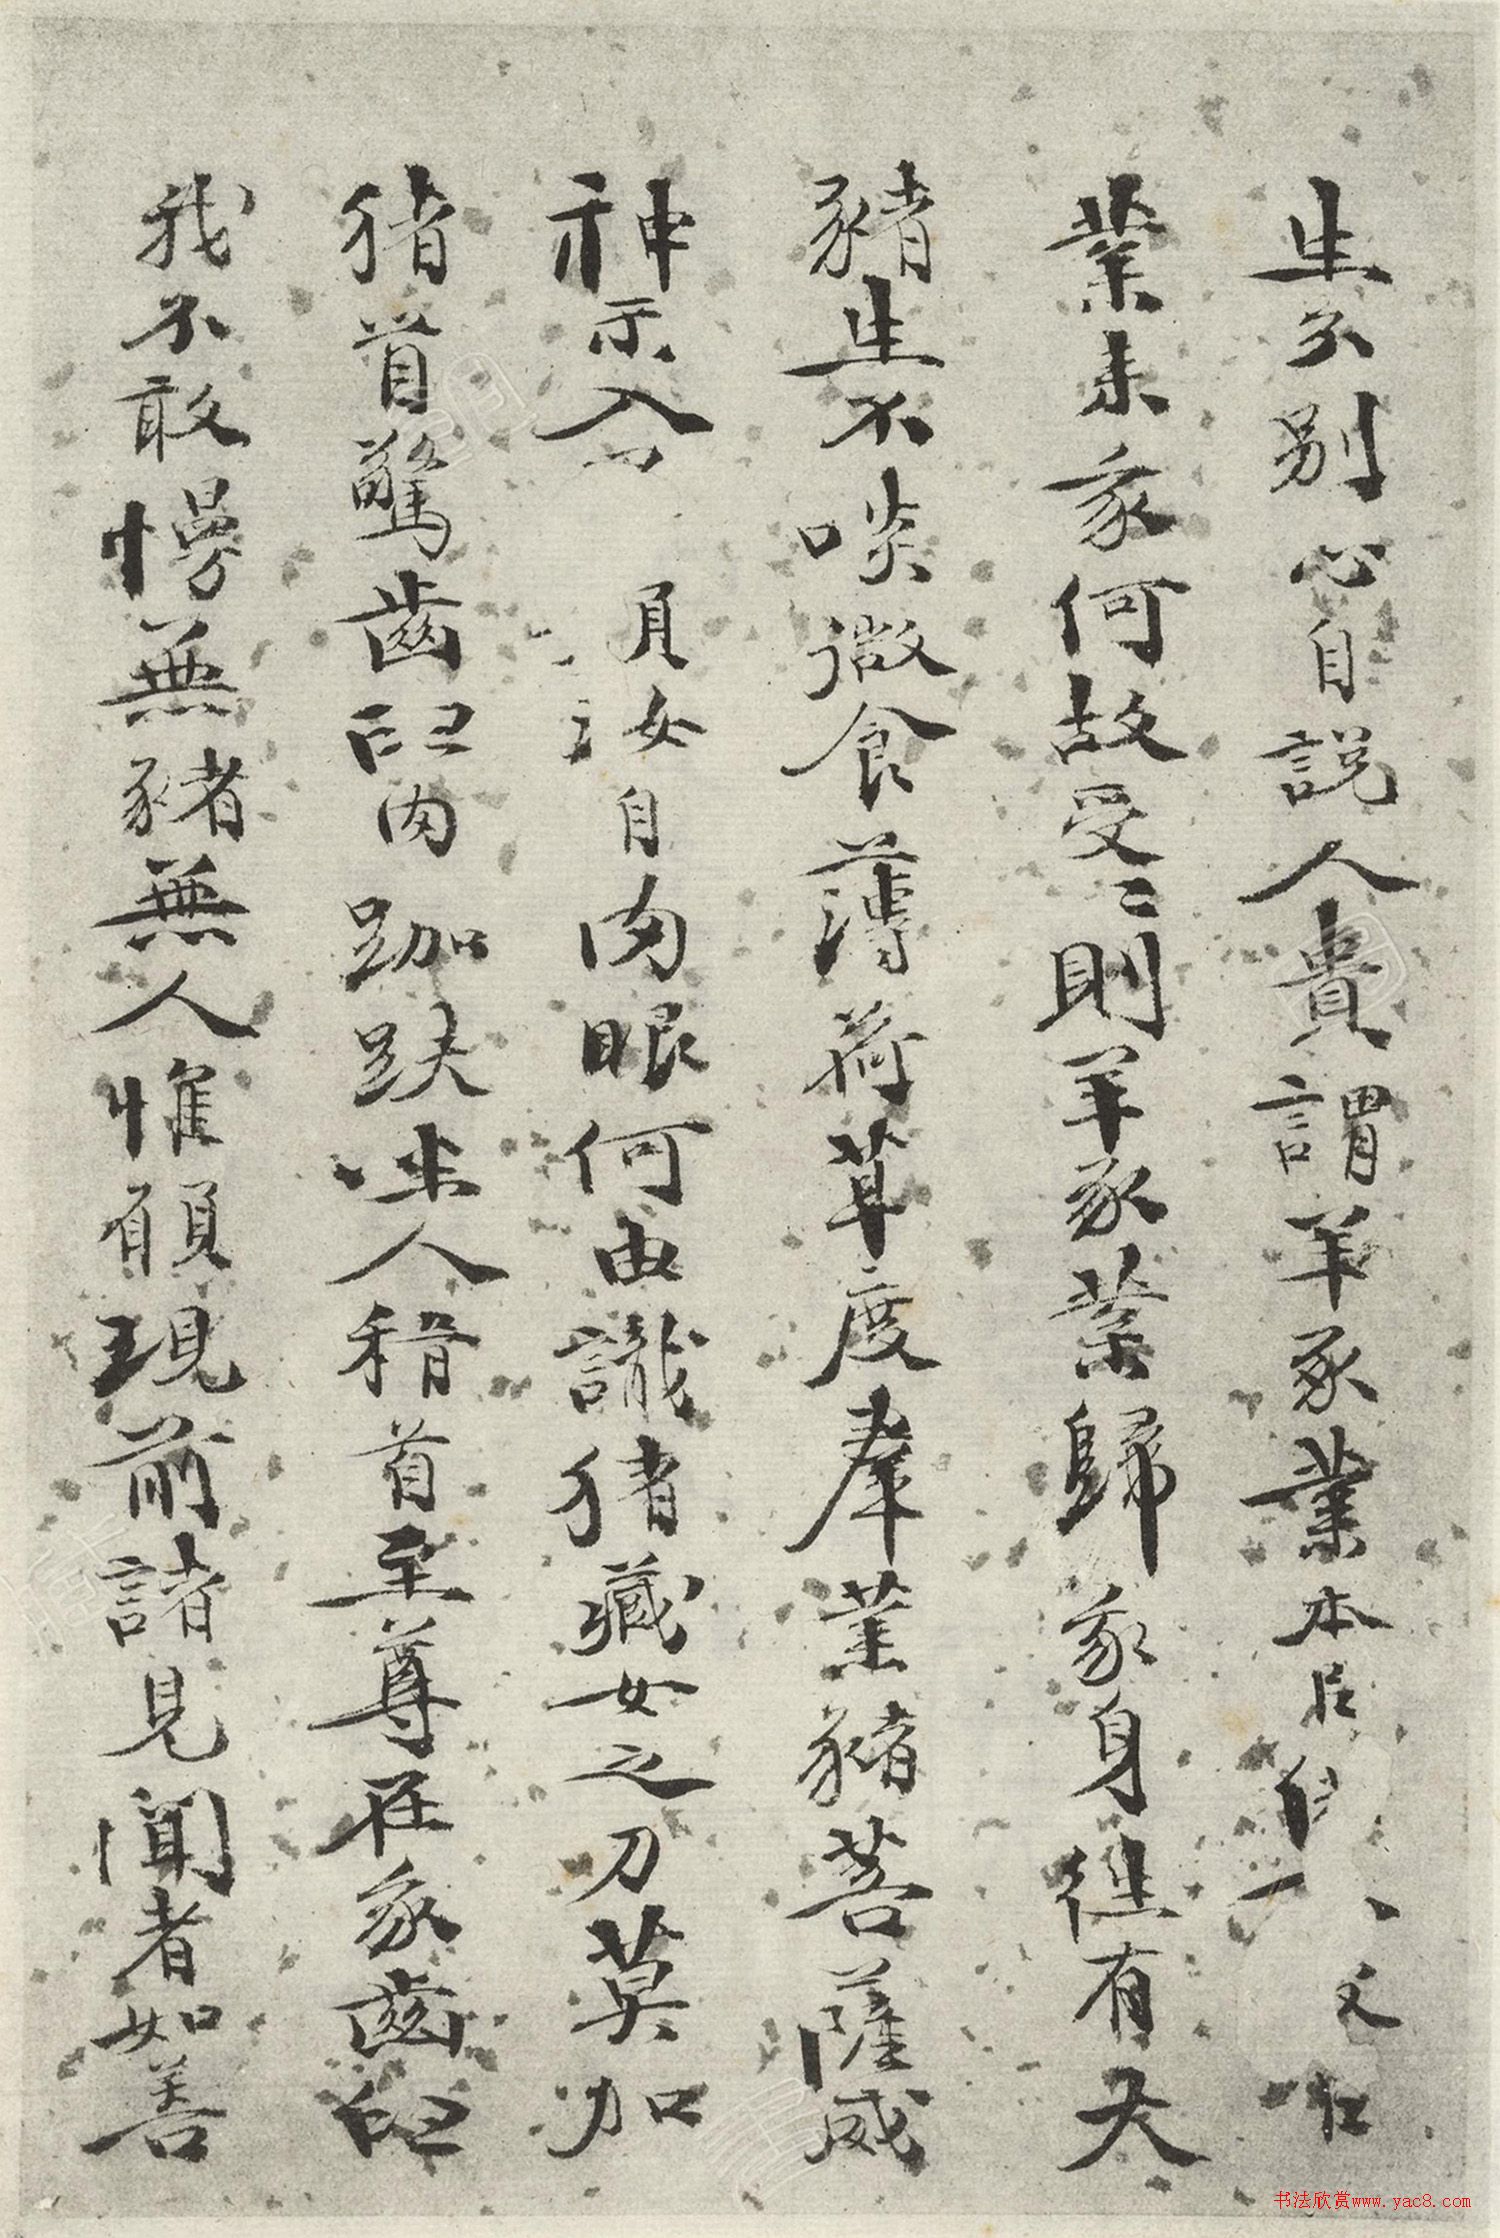 生分別心自說人貴謂羊豕業本
業未豕何故受〻則羊豕業歸豕身往有大
豬生不啖微食薄荷草度羣業豬菩薩威
神示入 女自肉眼何由識猪藏女之刀莫加
猪首驚齒臼肉跏趺坐人稽首至尊在豕齒臼
我不敢慢無豬無人惟願現前諸見聞者如善
书法欣赏www.yac8.com